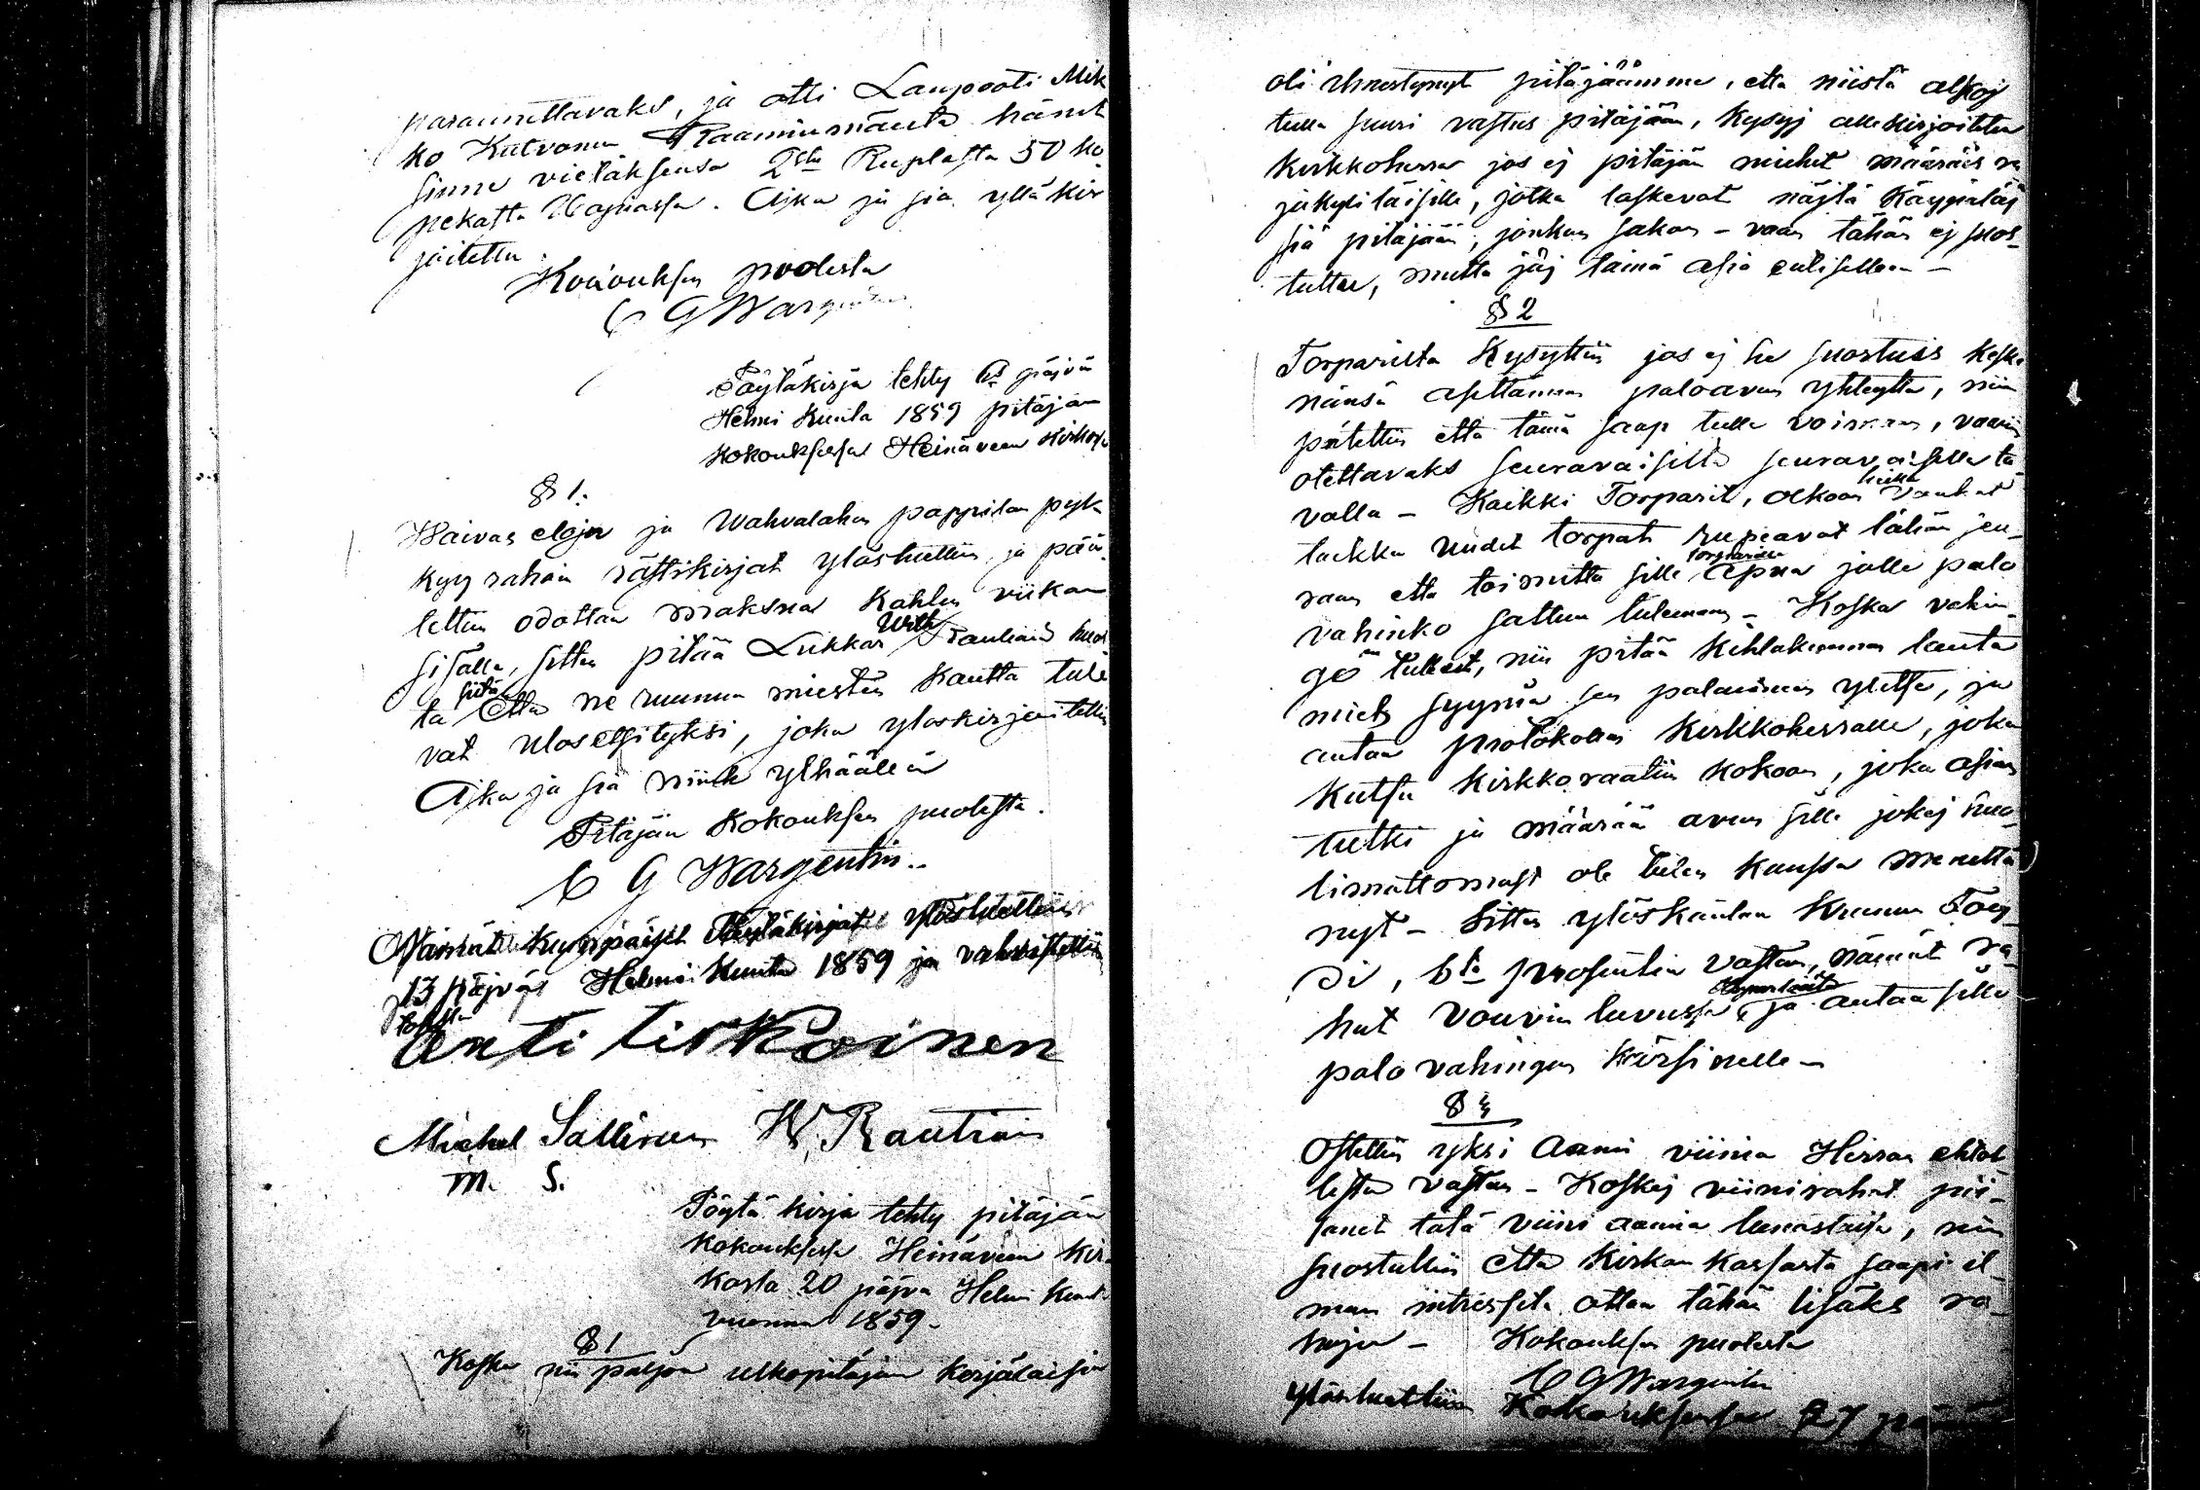 parannettavaks, ja otti Laupooti Mik
ko Kutvonen Raaminmäelta hänet
sinne vieläksensä 2sta Ruplasta 50 ko
pekasta Wapiassa. Aika ja sia yllä kir
joitettu.
Kokouksen puolesta
C G Wargentin
Pöytäkirja tehty 6s päjvä
Helmi Kuuta 1859 pitäjän
kokouksessa Heinäveen kirkossa
§ 1.
Waivas elojen ja Wahvalahen pappilan pyk
kyy rahain rästikirjat ylösluettiin ja pää
tettiin odottaa maksua kahden viikon
sisälle, sitten pitää Lukkar Wilh Rautiain huol
ta siitä että ne ruunun miesten kautta tule
vat ulosetsityksi, joka ylöskirjoitettiin
Ajka ja sia niink ylhäällä
Pitäjän Kokouksen puolesta.
C G Wargentin..
Nämät kumpaiset Pöytäkirjat ylösluettiin
13 päjvä Helmi Kuuta 1859 ja vahvistettiin
todistaa
Anti Tirkoinen
Michel Sallinen W. Rautiain
M. S.
Pöytäkirja tehty pitäjän
kokouksessa Heinäveen kir
kosta 20 päjvä Helmi kuuta
vuonna 1859.
§ 1
Koska nii paljon ulkopitäjän kerjäläisiä
oli ilmestynyt pitäjäämme, etta niistä alkoj
tulla suuri rastus pitäjään, kysyj allekirjoitettu
kirkkoherra jos ej pitäjän miehet määräis ra
jakyliläisille, jotka laskevat näjtä käypäläj
siä pitäjään, jonkun sakon - vaan tähän ej suos-
tuttu, mutta jäj tämä asia entisellään -
§ 2
Torpariilta kysyttiin jos ej he suostuis keske
nänsä asettamaan paloavun yhteyttä, niin
päätettiin että tämä saap tulla voimaan, vaariin
otettavaks seuravaisilta seuravaisella ta
valla - Kaikki Torparit, olkoon heillä vanhat
taikka uudet torpat rupeavat tähän seu-
raan että toimittaa sille torpparille apua jolle palo
vahinko sattuu tulemaan - Koska vahin
go on tullut, niin pitää kihlakunnan lauta
miehs syynin sen palaneen ylitse, ja
antaa protokollan kirkkoherralle, joka
kutsu kirkkoraatiin kokoon, joka asian
tutki ja määrää avun sille jokej huo-
limattomast ole tulen kanssa menettä
nyt - Sitten ylöskantaa kruunun Fou-
di, 6ta prosentin vastaan, nämät ra
hat vouvin luvussa ja antaa sille
palovahingon kärsineelle -
§ 3
Ostettiin yksi Aami viinia Herran ehtol
lista vastaan - Koskej viinirahat pii-
sanet tätä viini aamia lunastaissa, niin
suostuttiin että kirkon kassasta saapi il-
man intressitä ottaa tähän lisäks ra-
hoja - Kokouksen puolesta
C G Wargentin
Ylösluettiin Kokouksessa 27 päivä